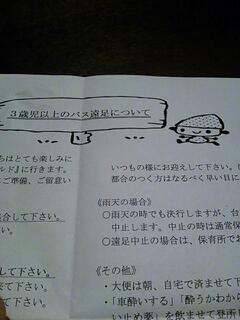 ３歳児以上のバス遠足について
ちはとても楽しみに
ルド』に行きます。
ご準備、ご留意い
合して下さい。
さい。
して下さい。
て下さい。
て下さい。
いつもの様にお迎えして下さい。
都合のつく方はなるべく早い目に
《雨天の場合》
○雨天の時でも決行しますが、台
中止します。中止の時は通常保
○遠足中止の場合は、保育所でお
《その他》
・大便は朝、自宅で済ませて下
・「車酔いする」「酔うかわか
い止め薬」を飲ませて登所し